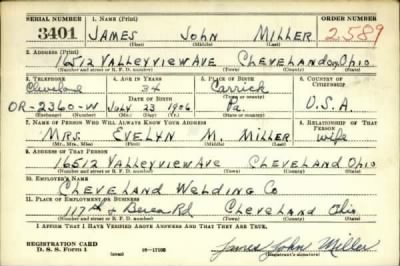 SERIAL NUMBER 1. NAME (Print) ORDER NUMBER
3401 JAMES JOHN MILLER 2,589
(First) (Middle) (Last)
2. ADDRESS (Print)
16512 VALLEYVIEW AVE CLEVELAND OHIO
(Number and street or R. F. D. number) (Town) (County) (State)
3. TELEPHONE 4. AGE IN YEARS 5. PLACE OF BIRTH 6. COUNTRY OF CITIZENSHIP
Cleveland 34 Carrick
DATE OF BIRTH (Town or county)
OR-2360-W JULY 23 1906 Pa. U.S.A.
(Exchange) (Number) (Mo.) (Day) (Yr.) (State or country)
7. NAME OF PERSON WHO WILL ALWAYS KNOW YOUR ADDRESS 8. RELATIONSHIP OF THAT PERSON
MRS. EVELYN M. MILLER wife
(Mr., Mrs., Miss) (First) (Middle) (Last)
9. ADDRESS OF THAT PERSON
16512 VALLEYVIEW AVE CLEVELAND OHIO
(Number and street or R. F. D. number) (Town) (County) (State)
10. EMPLOYER'S NAME
CLEVELAND WELDING CO
11. PLACE OF EMPLOYMENT OR BUSINESS
117th & Berea Rd Cleveland Ohio
(Number and street or R. F. D. number) (Town) (County) (State)
I AFFIRM THAT I HAVE VERIFIED ABOVE ANSWERS AND THAT THEY ARE TRUE.
REGISTRATION CARD
D. S. S. Form 1 16—17105 James John Miller
(Registrant's signature)